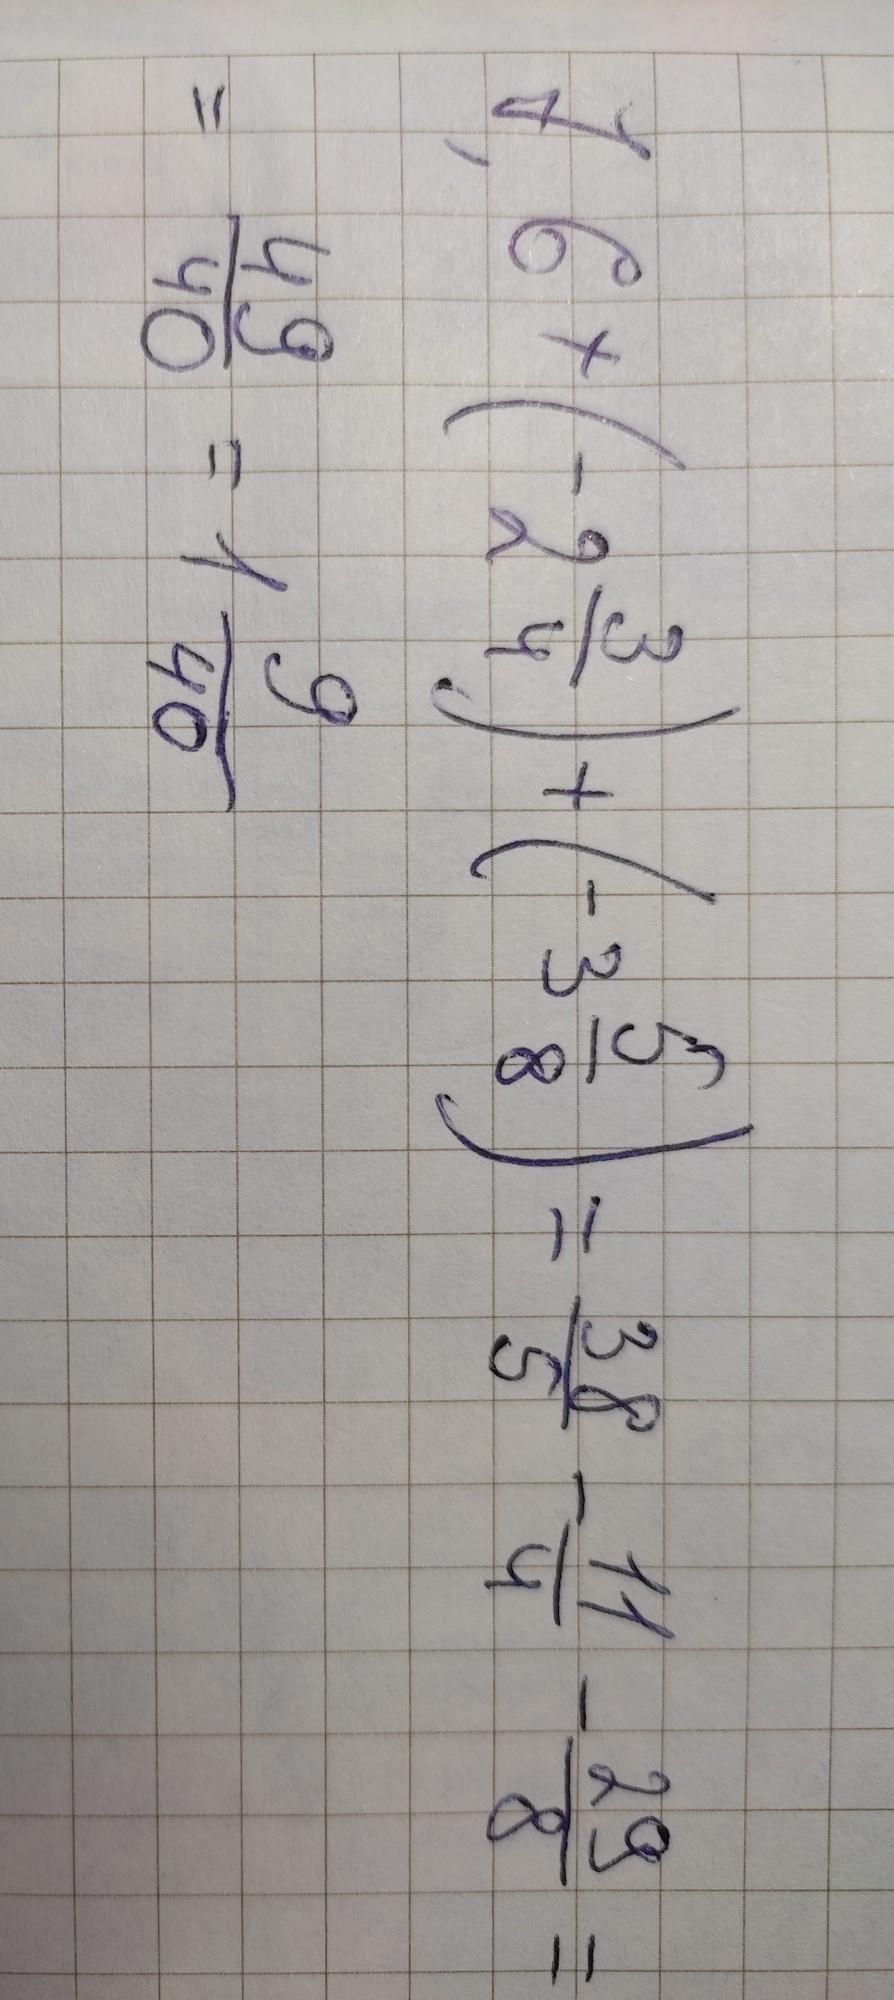 7,6 + (-2 3/4) + (-3 5/8) = 38/5 - 11/4 - 29/8 =
= 49/40 = 1 9/40